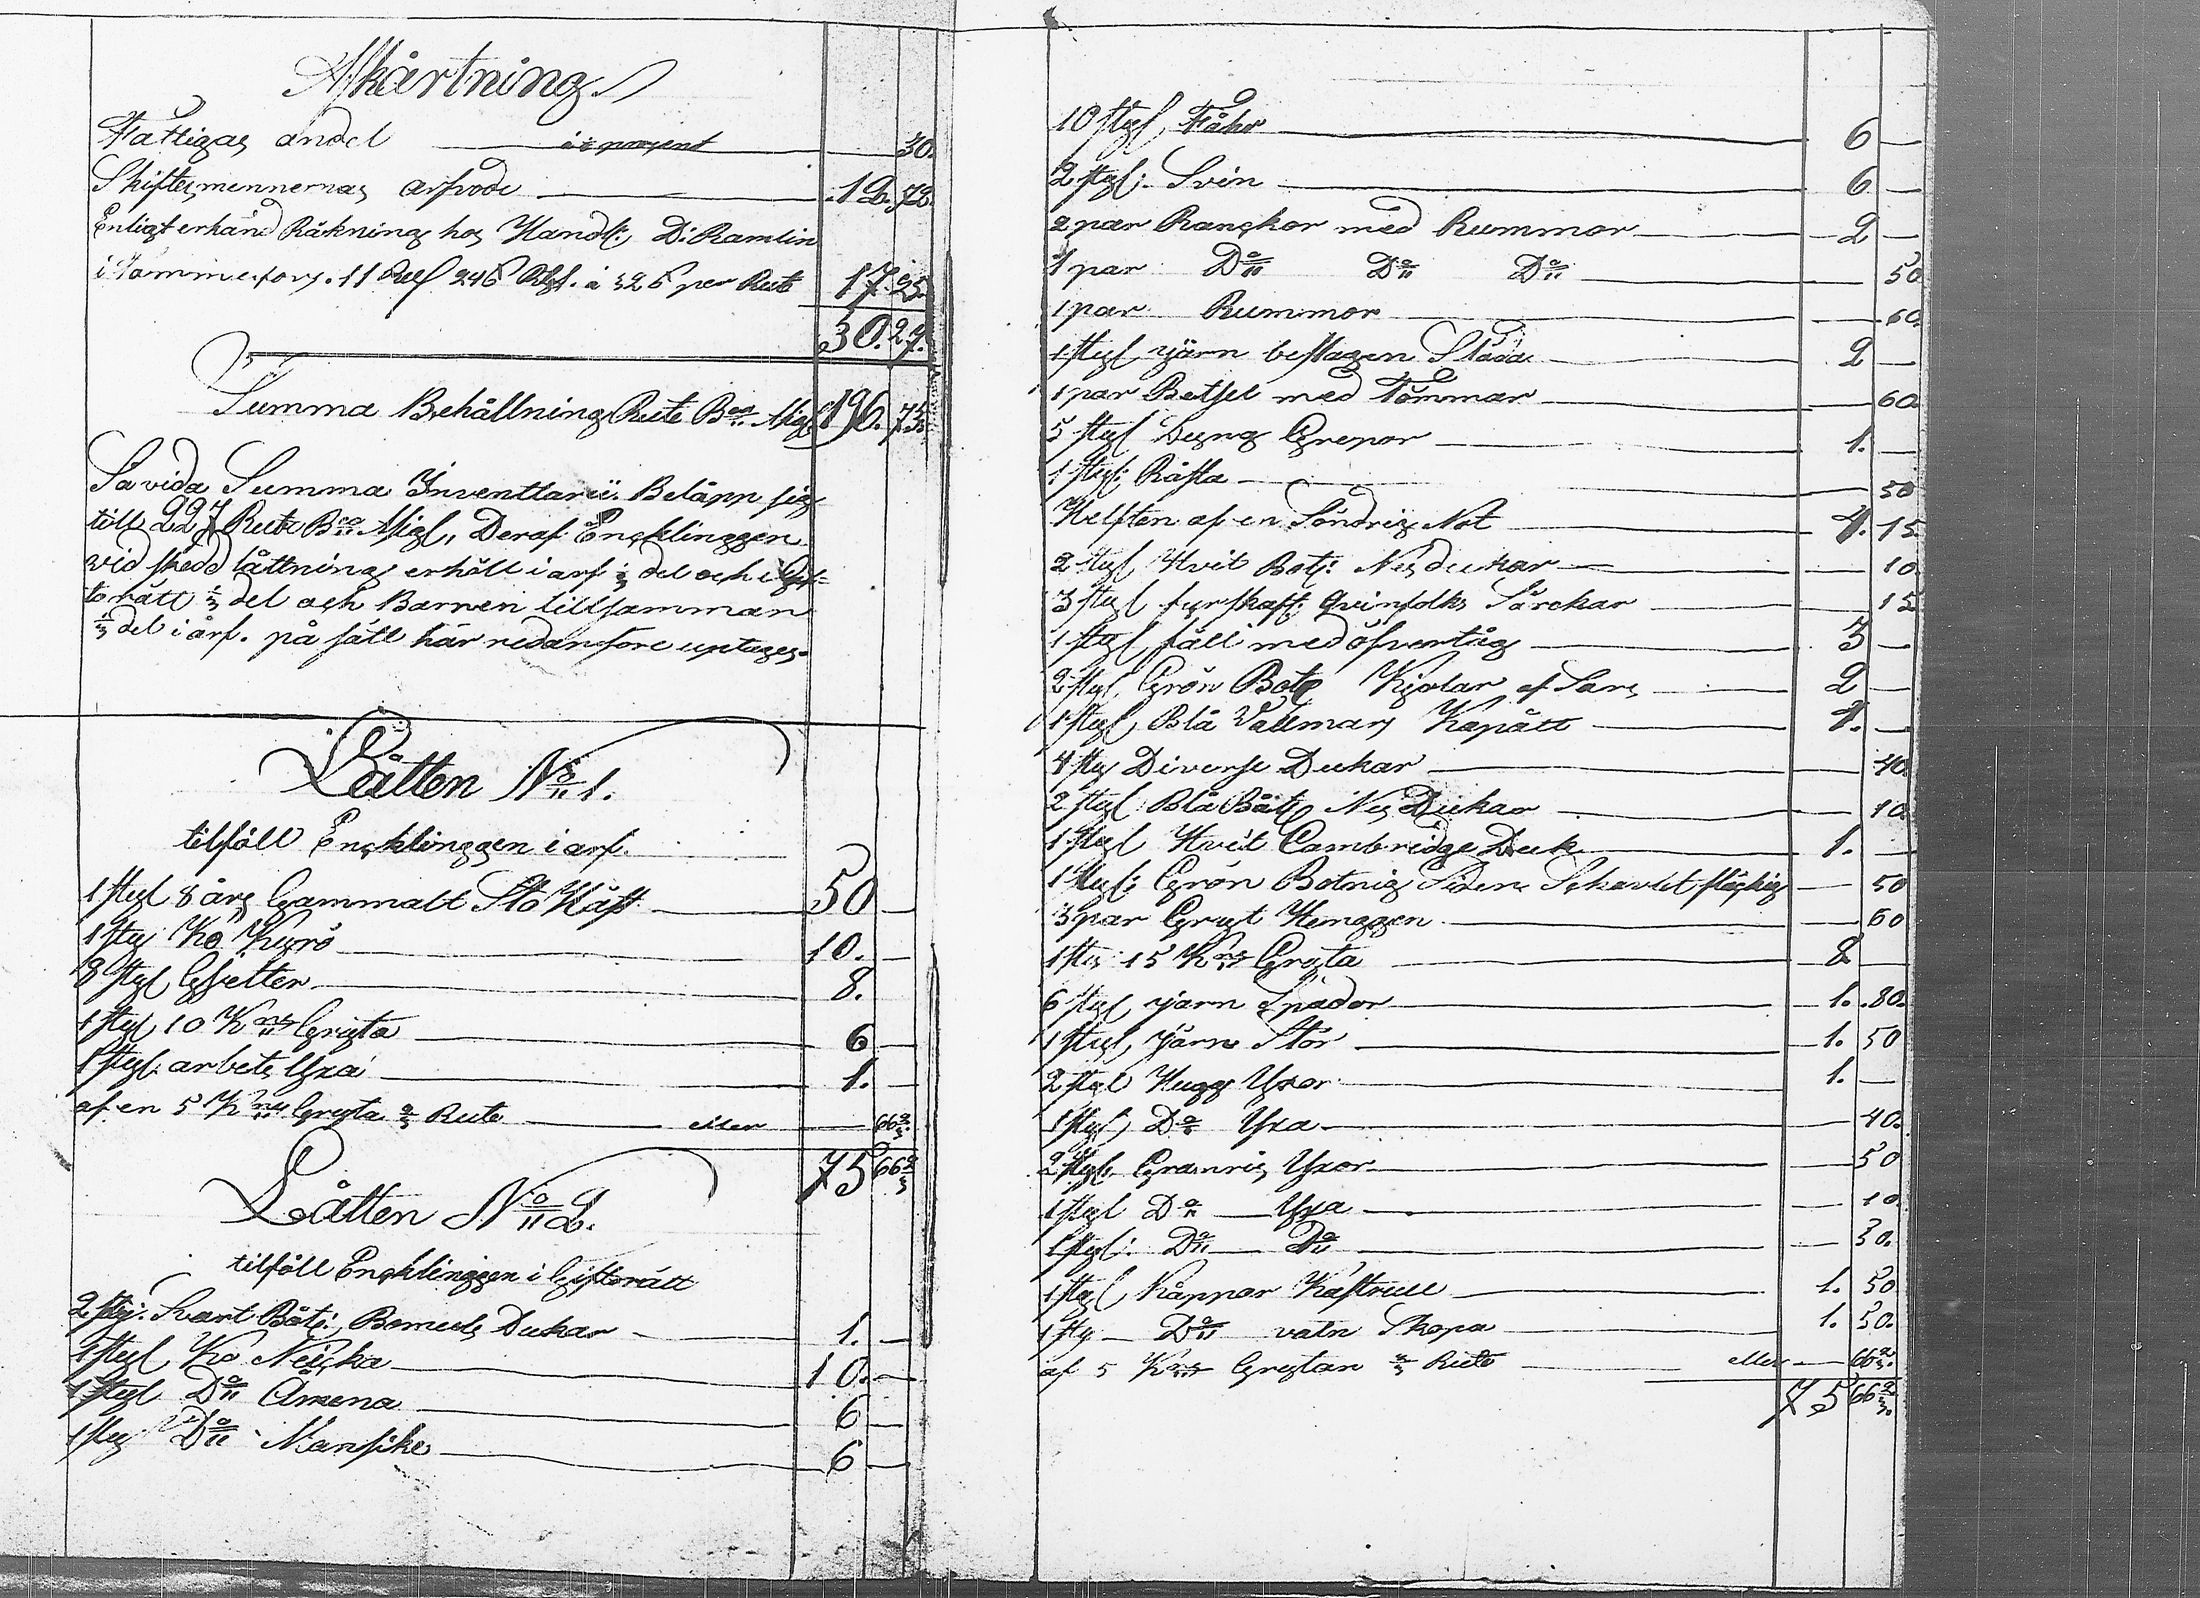 Afkårtning
Fattigas andel 30.
Skiftesmennernas arfvode 12. 72.
Enligt erhånd Räkning hos Handl: D: Ramlin
i Tammerfors. 11 246 á 325 per Rub 17. 25.
30. 27.
Summa Behållning Rub Bco 196. 73.
Så vida Summa Inventtarii Beläpp sig
till 227 Rub Bco Deraf Encklinggen
vid skedd låttning erhöll i arf ⅓ del och i Gif=
to rätt ⅓ del och Barnen tillsamman
⅓ del i arf. på sätt här nedanföre uptages.
Låtten No 1.
tilföll Encklinggen i arf.
1 styf 8 års Gammalt Sto Häst 50 —
1 sty Ko Kyrö 10. —
8 styf Gsetter 8.
1 styf 10 Kns Gryta 6 —
1 styf: arbets Yxa 1. —
af en 5 Kns Gryta ⅔ Rub eller — 66⅔
75 66⅔
Låtten No 2.
tilföll Encklinggen i Giftorätt
2 sty: Svart Båt: Bomuls Dukar 1. —
1 styf Ko Neicka 10. —
1 styf Do Omena 6 —
1 sty Do Mansike 6 —
10 styf Fåhr 6 —
2 styf: Svin 6 —
2 par Ranckor med Rummor 2 —
1 par Do Do Do 50
1 par Rummor 60.
1 styf järn beslagen Släda 2 —
1 par Betsel med Tömmar 60
5 styf Dyng Grepor 1. —
1 styf: Råsla 50
Helften af en Söndrig Not 4. 15.
2 styf Hvit Bot: Nesdukar 10
3 styf fyrskaft: Qvinfolks Särckar 15
1 styf fäll med öfvertåg 3 —
2 styf Grön Bot Kjolar af Sars 2 —
1 styf Blå Vallmars Kapått 4. —
4 sty Diverse Dukar 40.
2 styf Blå Båt Nes Dukar 10
1 styf Hvit Cambridge Duk 1. —
1 styf: Grön Botnig Siden Sckarlet fläckig 50
3 par Gryt Henggen 60
1 sty 15 Kns Gryta 8 —
6 styf järn Spador 1. 80.
1 styf järn Stör 1. 50
2 styf Hugg Yxor 1. —
1 styf Do Yxa 40.
2 styf Granris Yxor 50
1 styf Do Yxa 10.
1 styf: Do Do 30.
1 styf Kåppar Kastrull 1. 50
1 sty Do vatn Skopa 1. 50.
af 5 Kns Grytan ⅔ Rub eller — 66⅔.
75 66⅔.